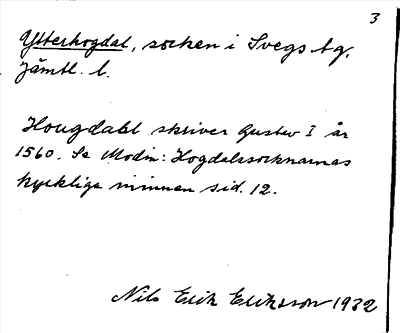 3
Ytterhogdal, socken i Svegs tg,
Jämtl. l.
Hougdahl skriver Gustav I år
1560. Se Modin: Hogdalssocknarnas
kyrkliga minnen sid. 12.
Nils Erik Eriksson 1932